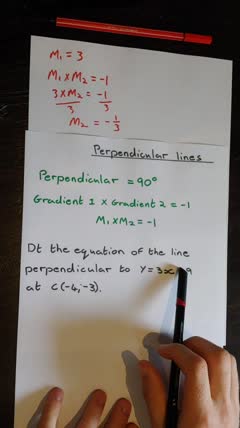 M₁ = 3
M₁ x M₂ = -1
3 x M₂ = -1
3 3
M₂ = -1/3
Perpendicular lines
Perpendicular = 90°
Gradient 1 x Gradient 2 = -1
M₁ x M₂ = -1
Dt the equation of the line
perpendicular to y = 3x 9
at C(-4,-3).